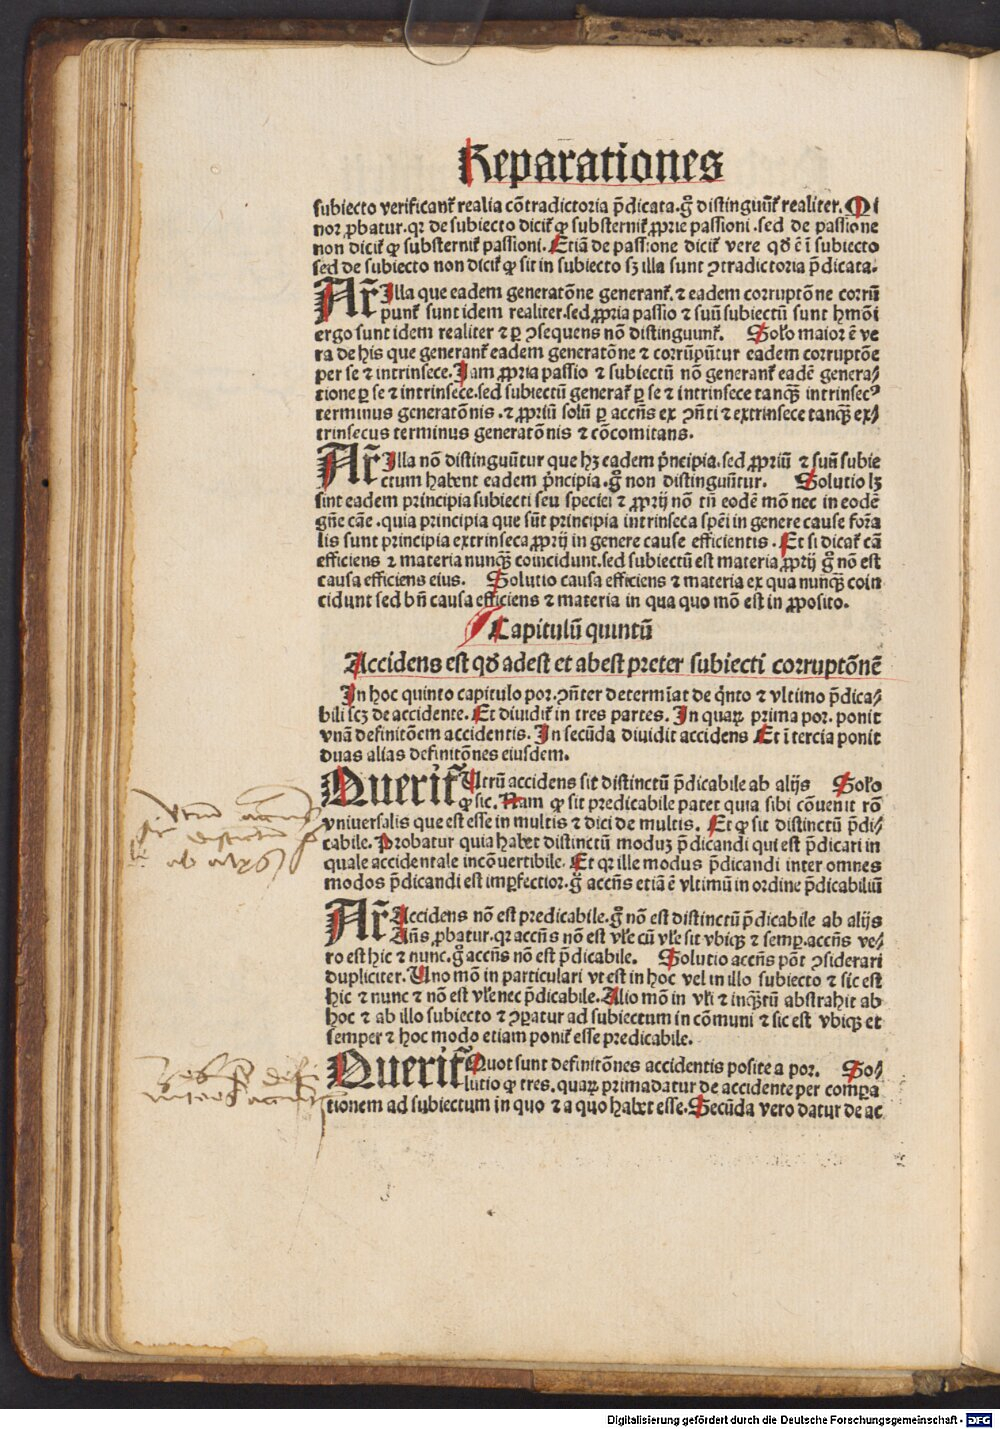 Reparationes
subiecto verificant᷑ realia cōtradictoria p̄dicata.g̊ distinguūt᷑ realiter. Mi
nor ꝓbatur.qꝛ de subiecto dicit᷑ ꝙ substernit᷑ ꝓprie passioni .sed de passione
non dicit᷑ ꝙ substernit᷑ passioni. Etiā de passione dicit᷑ vere qđ ē ī subiecto
sed de subiecto non dicit᷑ ꝙ sit in subiecto sꝫ illa sunt ꝯtradictoria p̄dicata.
Ar᷑ Illa que eadem generatōne generant᷑.⁊ eadem corruptōne corrū
punt᷑ sunt idem realiter.sed ꝓpria passio ⁊ suū subiectū sunt hmōi
ergo sunt idem realiter ⁊ ꝑ ꝯsequens nō distinguunt᷑. Solo maior ē ve
ra de his que generant᷑ eadem generatōne ⁊ corrūpūtur eadem corruptōe
per se ⁊ intrinsece.Iam ꝓpria passio ⁊ subiectū nō generant᷑ eadē genera/
tione ꝑ se ⁊ intrinsece.sed subiectū generat᷑ ꝑ se ⁊ intrinsece tanqꝫ intrinsecꝰ
terminus generatōnis .⁊ ꝓpriū solū ꝑ accn̄s ex ꝯn̄ti ⁊ extrinsece tanqꝫ ex/
trinsecus terminus generatōnis ⁊ cōcomitans.
Ar᷑ Illa nō distinguūtur que hꝫ eadem p̄ncipia.sed ꝓpriū ⁊ suū subie
ctum habent eadem p̄ncipia.g̊ non distinguūtur. Solutio lꝫ
sint eadem principia subiecti seu speciei ⁊ ꝓprij nō tn̄ eodē mō nec in eodē
gn̄e cāe .quia principia que sūt principia intrinseca spēi in genere cause forā
lis sunt principia extrinseca ꝓprij in genere cause efficientis . Et si dicat᷑ cā
efficiens ⁊ materia nunqꝫ coincidunt.sed subiectū est materia ꝓprij g̊ nō est
causa efficiens eius. Solutio causa efficiens ⁊ materia ex qua nunqꝫ coin
cidunt sed bn̄ causa efficiens ⁊ materia in qua quo mō est in ꝓposito.
Capitulū quintū
Accidens est qđ adest et abest preter subiecti corruptōnē
In hoc quinto capitulo por.ꝯn̄ter determīat de q̄nto ⁊ vltimo p̄dica/
bili scꝫ de accidente. Et diuidit᷑ in tres partes. In quaꝝ prima por. ponit
vnā definitōem accidentis. In secūda diuidit accidens Et ī tercia ponit
duas alias definitōnes eiusdem.
Querit᷑ Utrū accidens sit distinctū p̄dicabile ab alijs Solo
ꝙ sic. Nam ꝙ sit predicabile patet quia sibi cōuenit rō
vniuersalis que est esse in multis ⁊ dici de multis. Et ꝙ sit distinctū p̄di/
cabile. Probatur quia habet distinctū modum p̄dicandi qui est p̄dicari in
quale accidentale incōuertibile. Et qꝛ ille modus p̄dicandi inter omnes
modos p̄dicandi est imꝑfectior.g̊ accn̄s etiā ē vltimū in ordine p̄dicabiliū
Ar᷑ Accidens nō est predicabile.g̊ nō est distinctū p̄dicabile ab alijs
Ans ꝓbatur.qꝛ accn̄s nō est vl̄e cū vl̄e sit vbiqꝫ ⁊ semꝑ.accn̄s ve/
ro est hic ⁊ nunc.g̊ accn̄s nō est p̄dicabile. Solutio accn̄s pōt ꝯsiderari
dupliciter. Uno mō in particulari vt est in hoc vel in illo subiecto ⁊ sic est
hic ⁊ nunc ⁊ nō est vl̄e nec p̄dicabile. Alio mō in vl̄i ⁊ inqꝫtū abstrahit ab
hoc ⁊ ab illo subiecto ⁊ ꝯꝑatur ad subiectum in cōmuni ⁊ sic est vbiqꝫ et
semper ⁊ hoc modo etiam ponit᷑ esse predicabile.
Querit᷑ Quot sunt definitōnes accidentis posite a por. So/
lutio ꝙ tres. quaꝝ prima datur de accidente per comꝑa
tionem ad subiectum in quo ⁊ a quo habet esse. Secūda vero datur de ac
Vtrum accns
distinctum
ab alijs
Digitalisierung gefördert durch die Deutsche Forschungsgemeinschaft - DFG